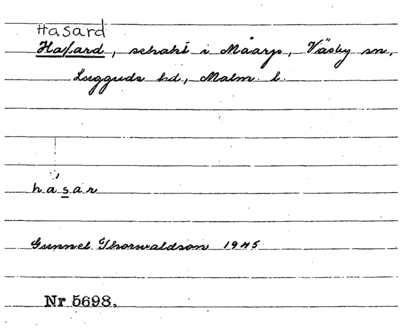 Hasard
Hasard, schakt i Måarp, Väsby sn,
Luggude hd, Malm. l.
hásar
Gunnel Thorwaldson 1945
Nr 5698.